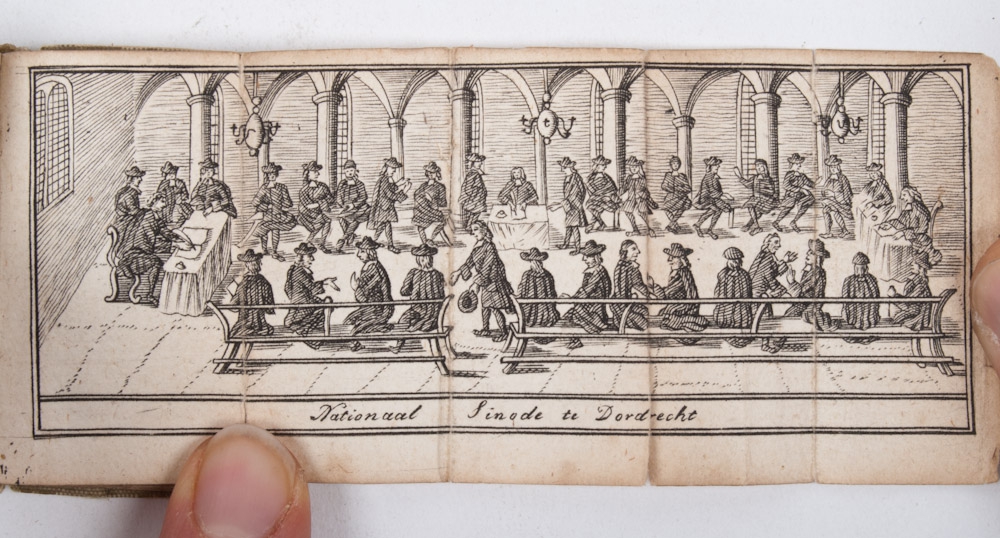 Nationaal Sinode te Dordrecht